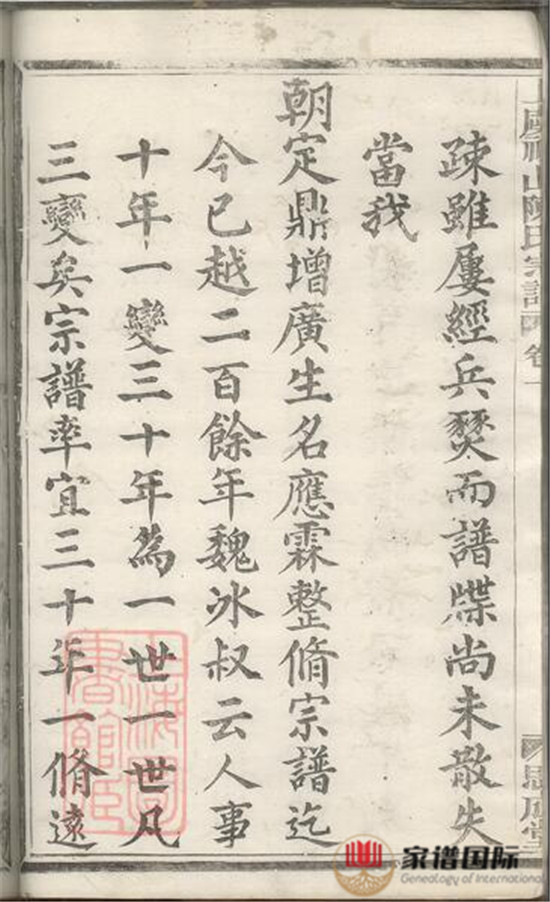 疎雖屢經兵燹而譜牒尚未散失
當我
朝定鼎增廣生名應霖整脩宗譜迄
今已越二百餘年魏冰叔云人事
十年一變三十年為一世一世凡
三變矣宗譜率宜三十年一脩遠
山陳氏宗譜
卷一
家谱国际
Genealogy of International